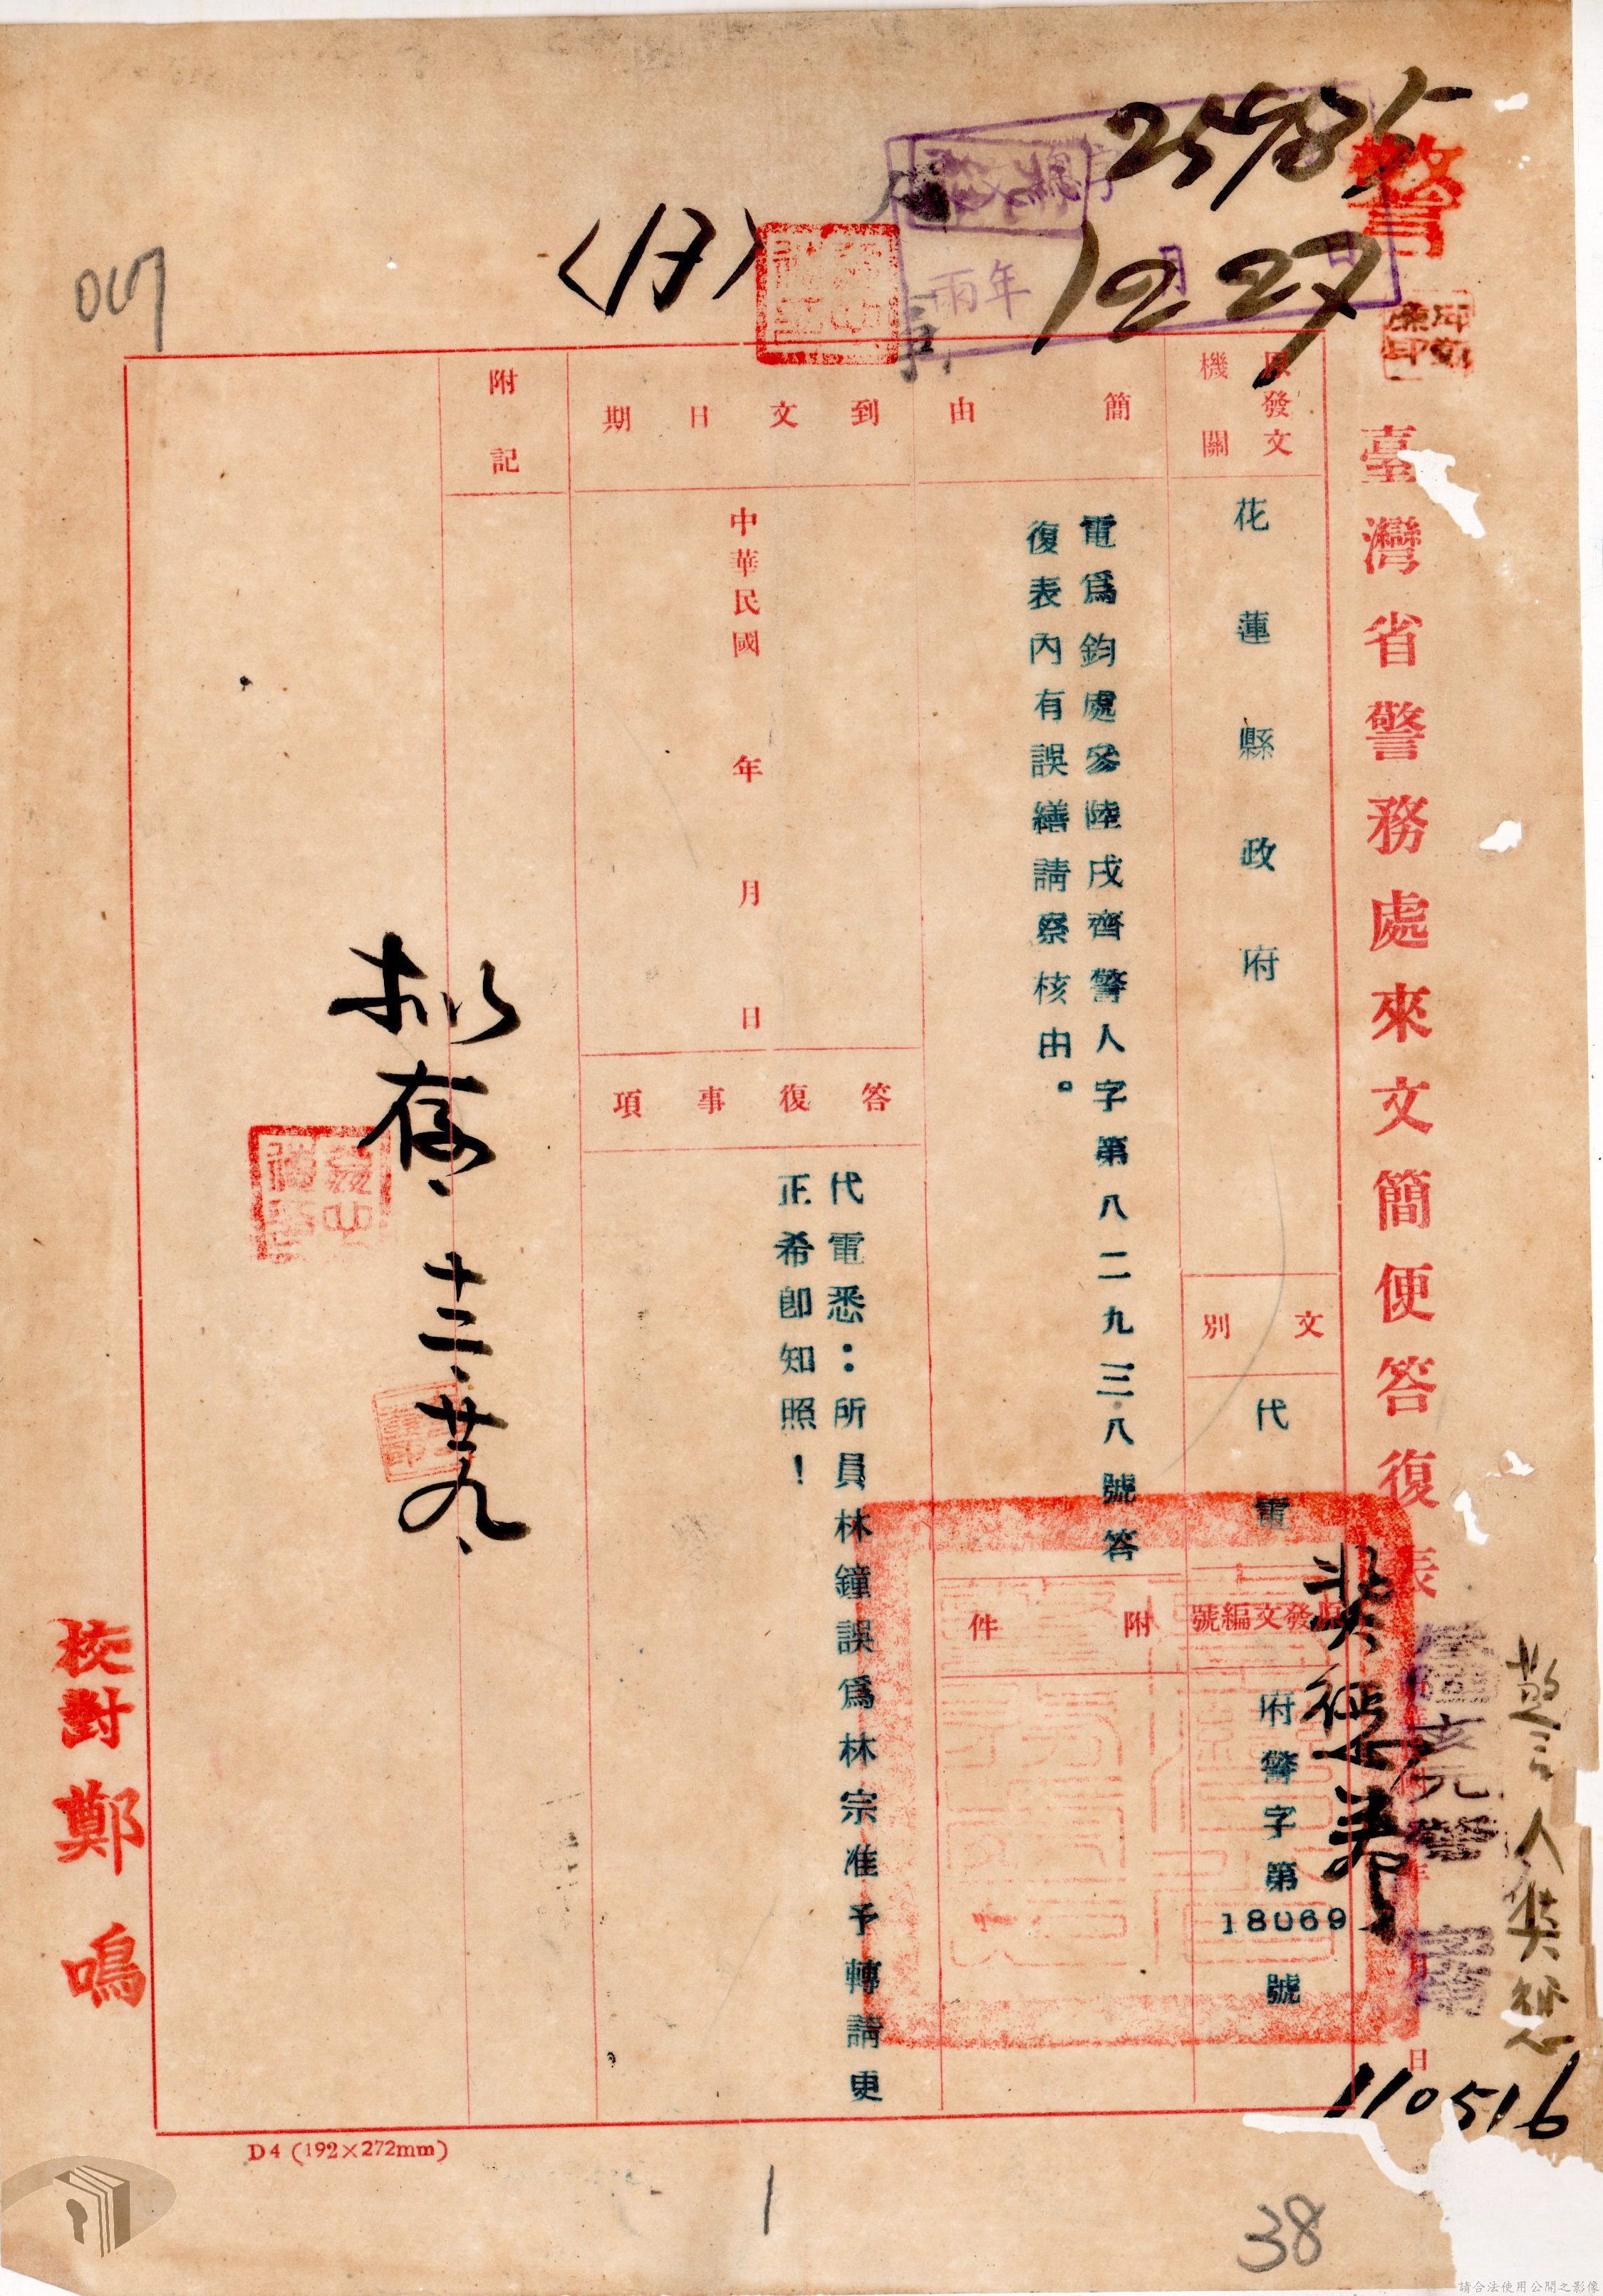 警
25985
12 27
年 月 日
017
臺灣省警務處來文簡便答復表
警人獎懲
110516
日
原發文機關
花蓮縣政府
文別
代電
原發文編號
府警字第18069號
簡由
電爲鈞處參陸戌齊警人字第八二九三八號答
復表內有誤繕請察核由。
附件
到文日期
中華民國 年 月 日
答復事項
代電悉：所員林鐘誤爲林宗准予轉請更
正希卽知照！
附記
拟存、
十二、廿九、
校對 鄭鳴
D4 (192×272mm)
1
38
請合法使用公開之影像